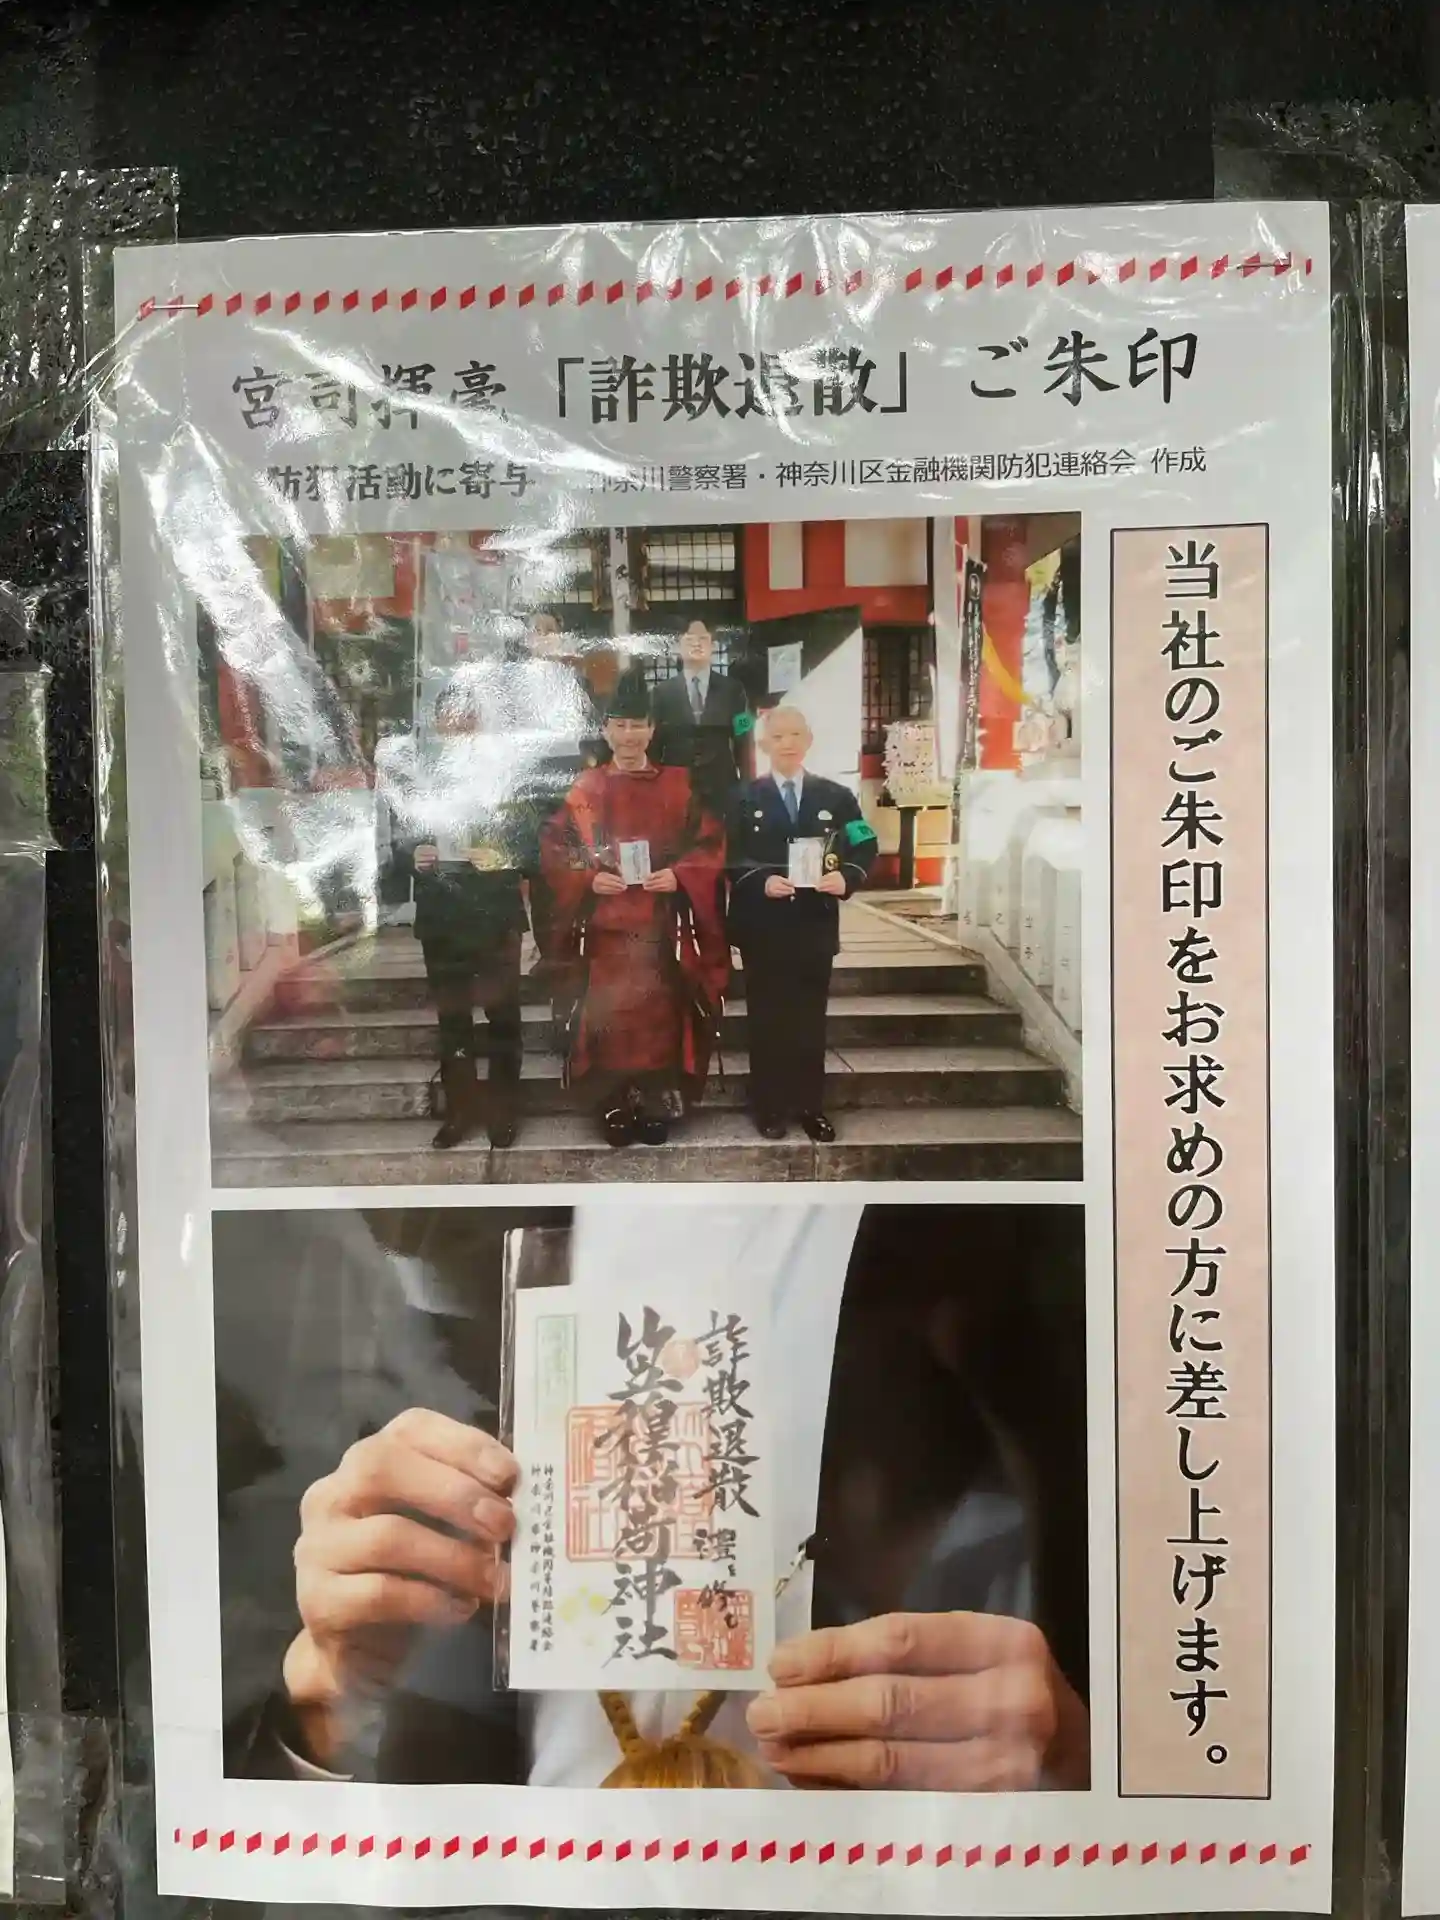 宮司揮毫「詐欺退散」ご朱印
防犯活動に寄与 神奈川警察署・神奈川区金融機関防犯連絡会 作成
当社のご朱印をお求めの方に差し上げます。
詐欺退散
笠䅣稲荷神社
神奈川区金融機関防犯連絡会
神奈川県神奈川警察署